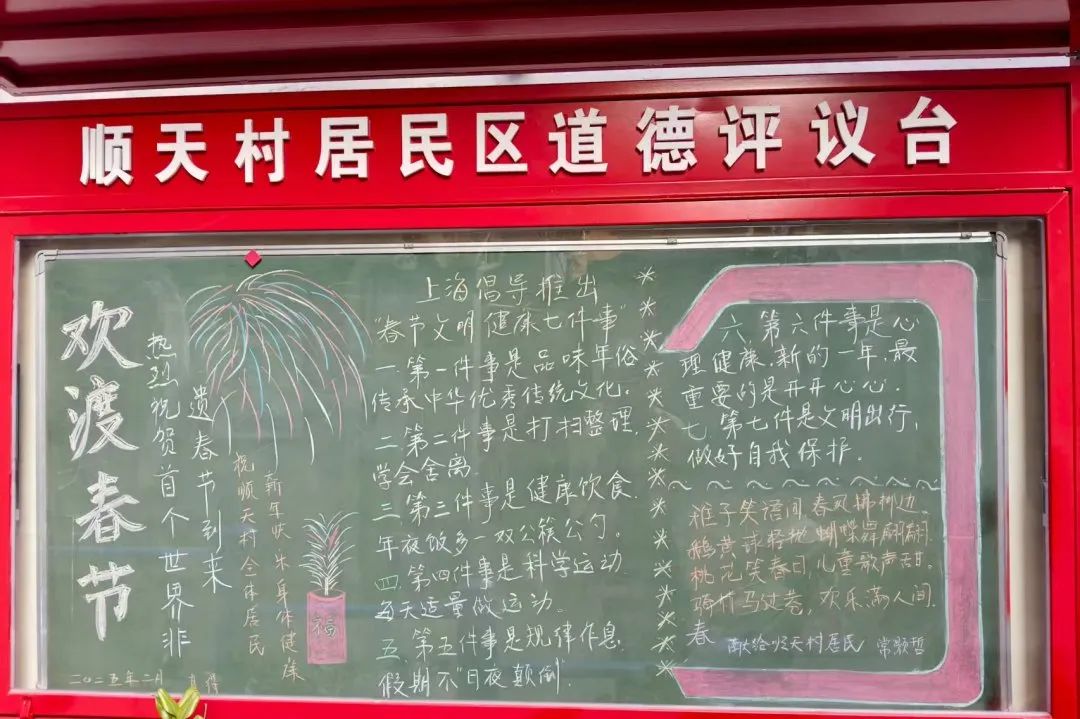 顺天村居民区道德评议台
欢渡春节
热烈祝贺首个世界非
遗春节到来
祝顺天村全体居民
新年快乐身体健康
福
二〇二五年二月
上海倡导推出
"春节文明健康七件事"
一.第一件事是品味年俗
传承中华优秀传统文化。
二.第二件事是打扫整理,
学会舍离.
三.第三件事是健康饮食.
年夜饭多一双公筷公勺。
四.第四件事是科学运动
每天适量做运动。
五.第五件事是规律作息
假期不"日夜颠倒".
六.第六件事是心
理健康.新的一年.最
重要的是开开心心.
七.第七件是文明出行,
做好自我保护.
稚子笑语间,春风拂柳边.
鹅黄球轻抛,蝴蝶舞翩翩.
桃花笑春日,儿童歌声甜.
骑竹马过巷,欢乐满人间.
春
献给顺天村居民 常颢哲